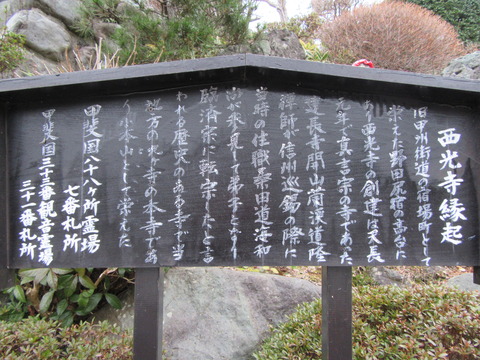 西光寺縁起
旧甲州街道の宿場町として
栄えた野田尻宿の高台に
あり西光寺の創建は天長
元年で真言宗の寺であった
建長寺開山蘭渓道隆
禅師が信州巡錫の際に
当時の住職桑田道海和
尚が参見して弟子となり
臨済宗に転宗したと言
われる歴史のある寺で当
地方のヶ寺の本寺であ
り小本山として栄えた
甲斐国八十八ヶ所霊場
七番札所
甲斐国三十三番観音霊場
三十一番札所